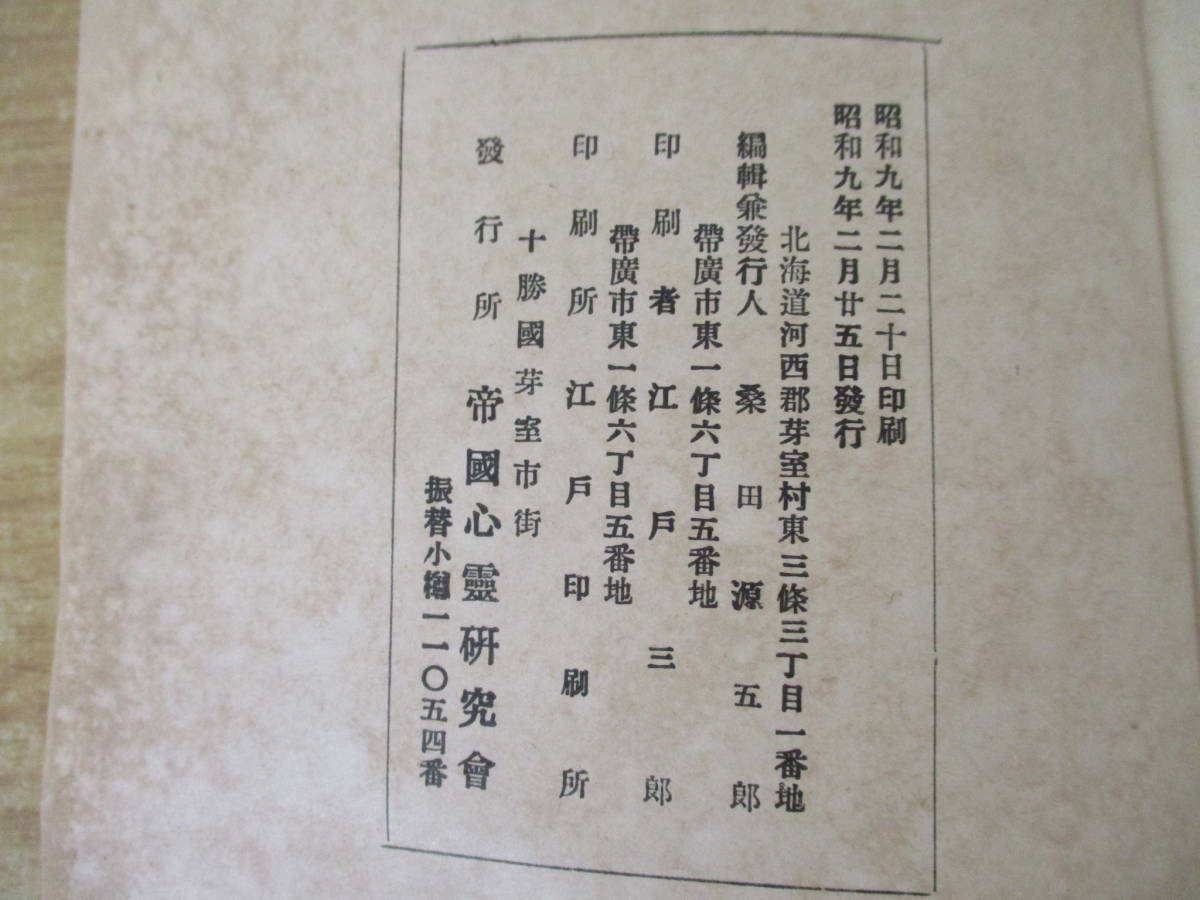 昭和九年二月二十日印刷
昭和九年二月廿五日發行
北海道河西郡芽室村東三條三丁目一番地
編輯兼發行人 桑田源五郎
帶廣市東一條六丁目五番地
印刷者 江戶三郎
帶廣市東一條六丁目五番地
印刷所 江戶印刷所
十勝國芽室市街
發行所 帝國心靈硏究會
振替小樽一一〇五四番